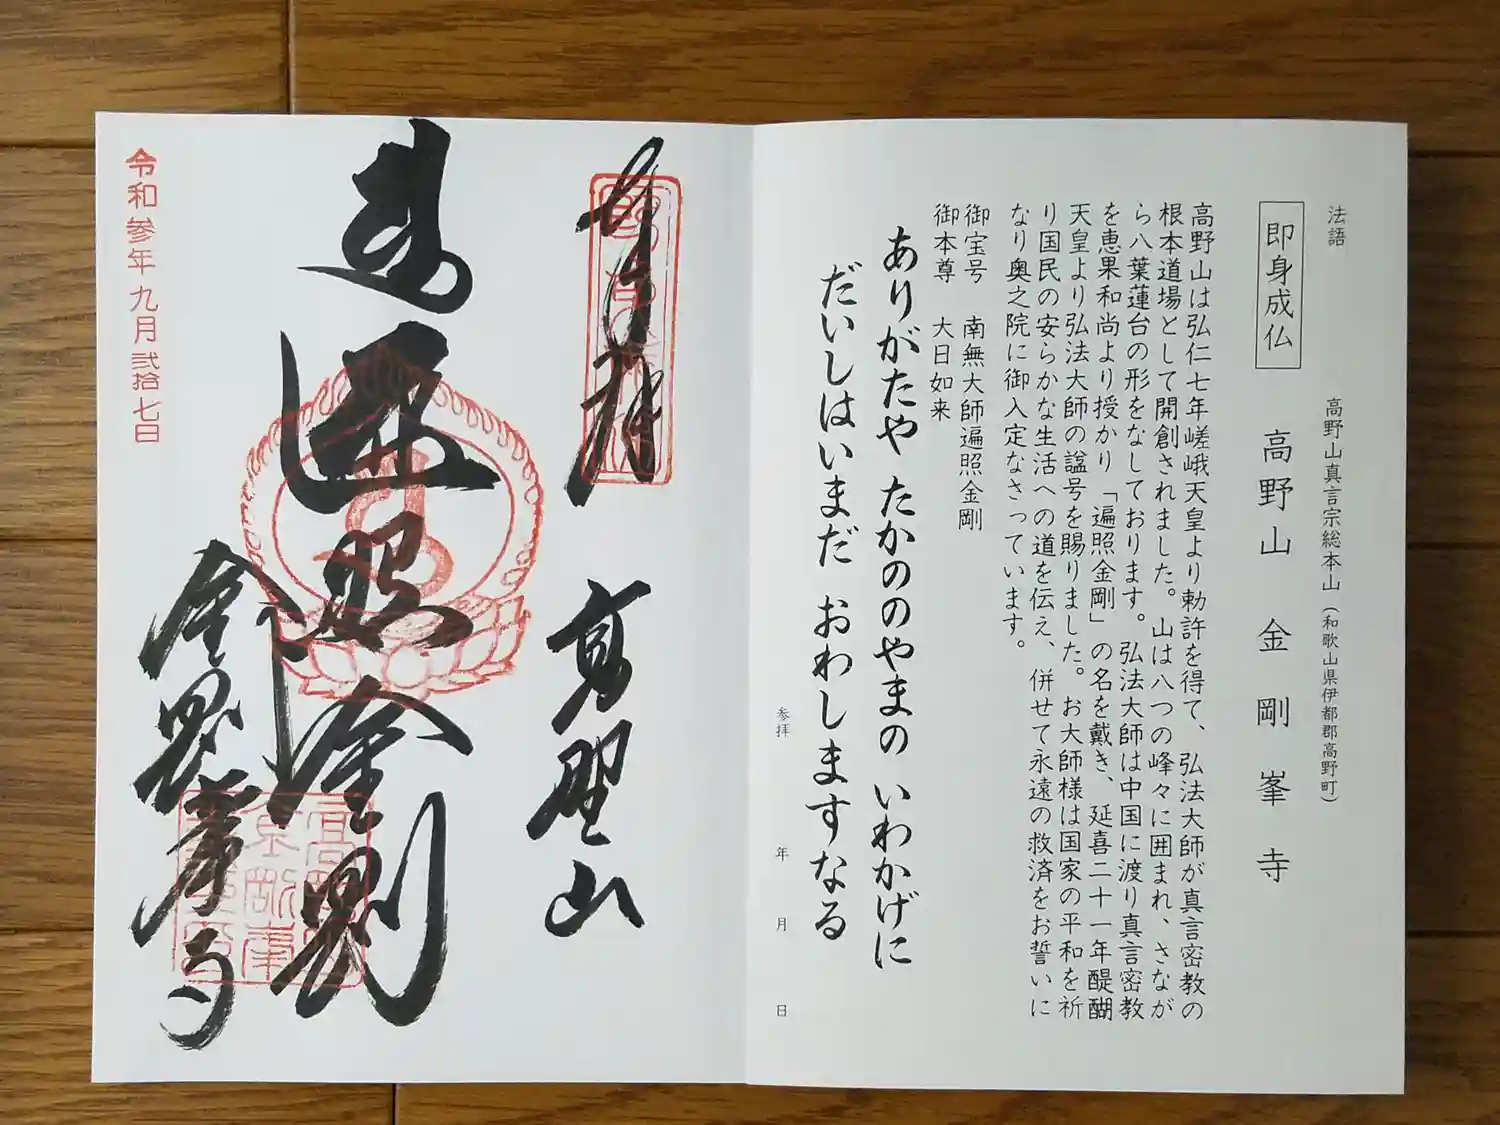 法語
高野山真言宗総本山（和歌山県伊都郡高野町）
即身成仏
高野山 金剛峯寺
高野山は弘仁七年嵯峨天皇より勅許を得て、弘法大師が真言密教の
根本道場として開創されました。山は八つの峰々に囲まれ、さなが
ら八葉蓮台の形をなしております。弘法大師は中国に渡り真言密教
を恵果和尚より授かり「遍照金剛」の名を戴き、延喜二十一年醍醐
天皇より弘法大師の諡号を賜りました。お大師様は国家の平和を祈
り国民の安らかな生活への道を伝え、併せて永遠の救済をお誓いに
なり奥之院に御入定なさっています。
御宝号 南無大師遍照金剛
御本尊 大日如来
ありがたや たかののやまの いわかげに
だいしはいまだ おわしますなる
参拝 年 月 日
奉拝 高野山
遍照金剛
金剛峯寺
令和参年九月弐拾七日